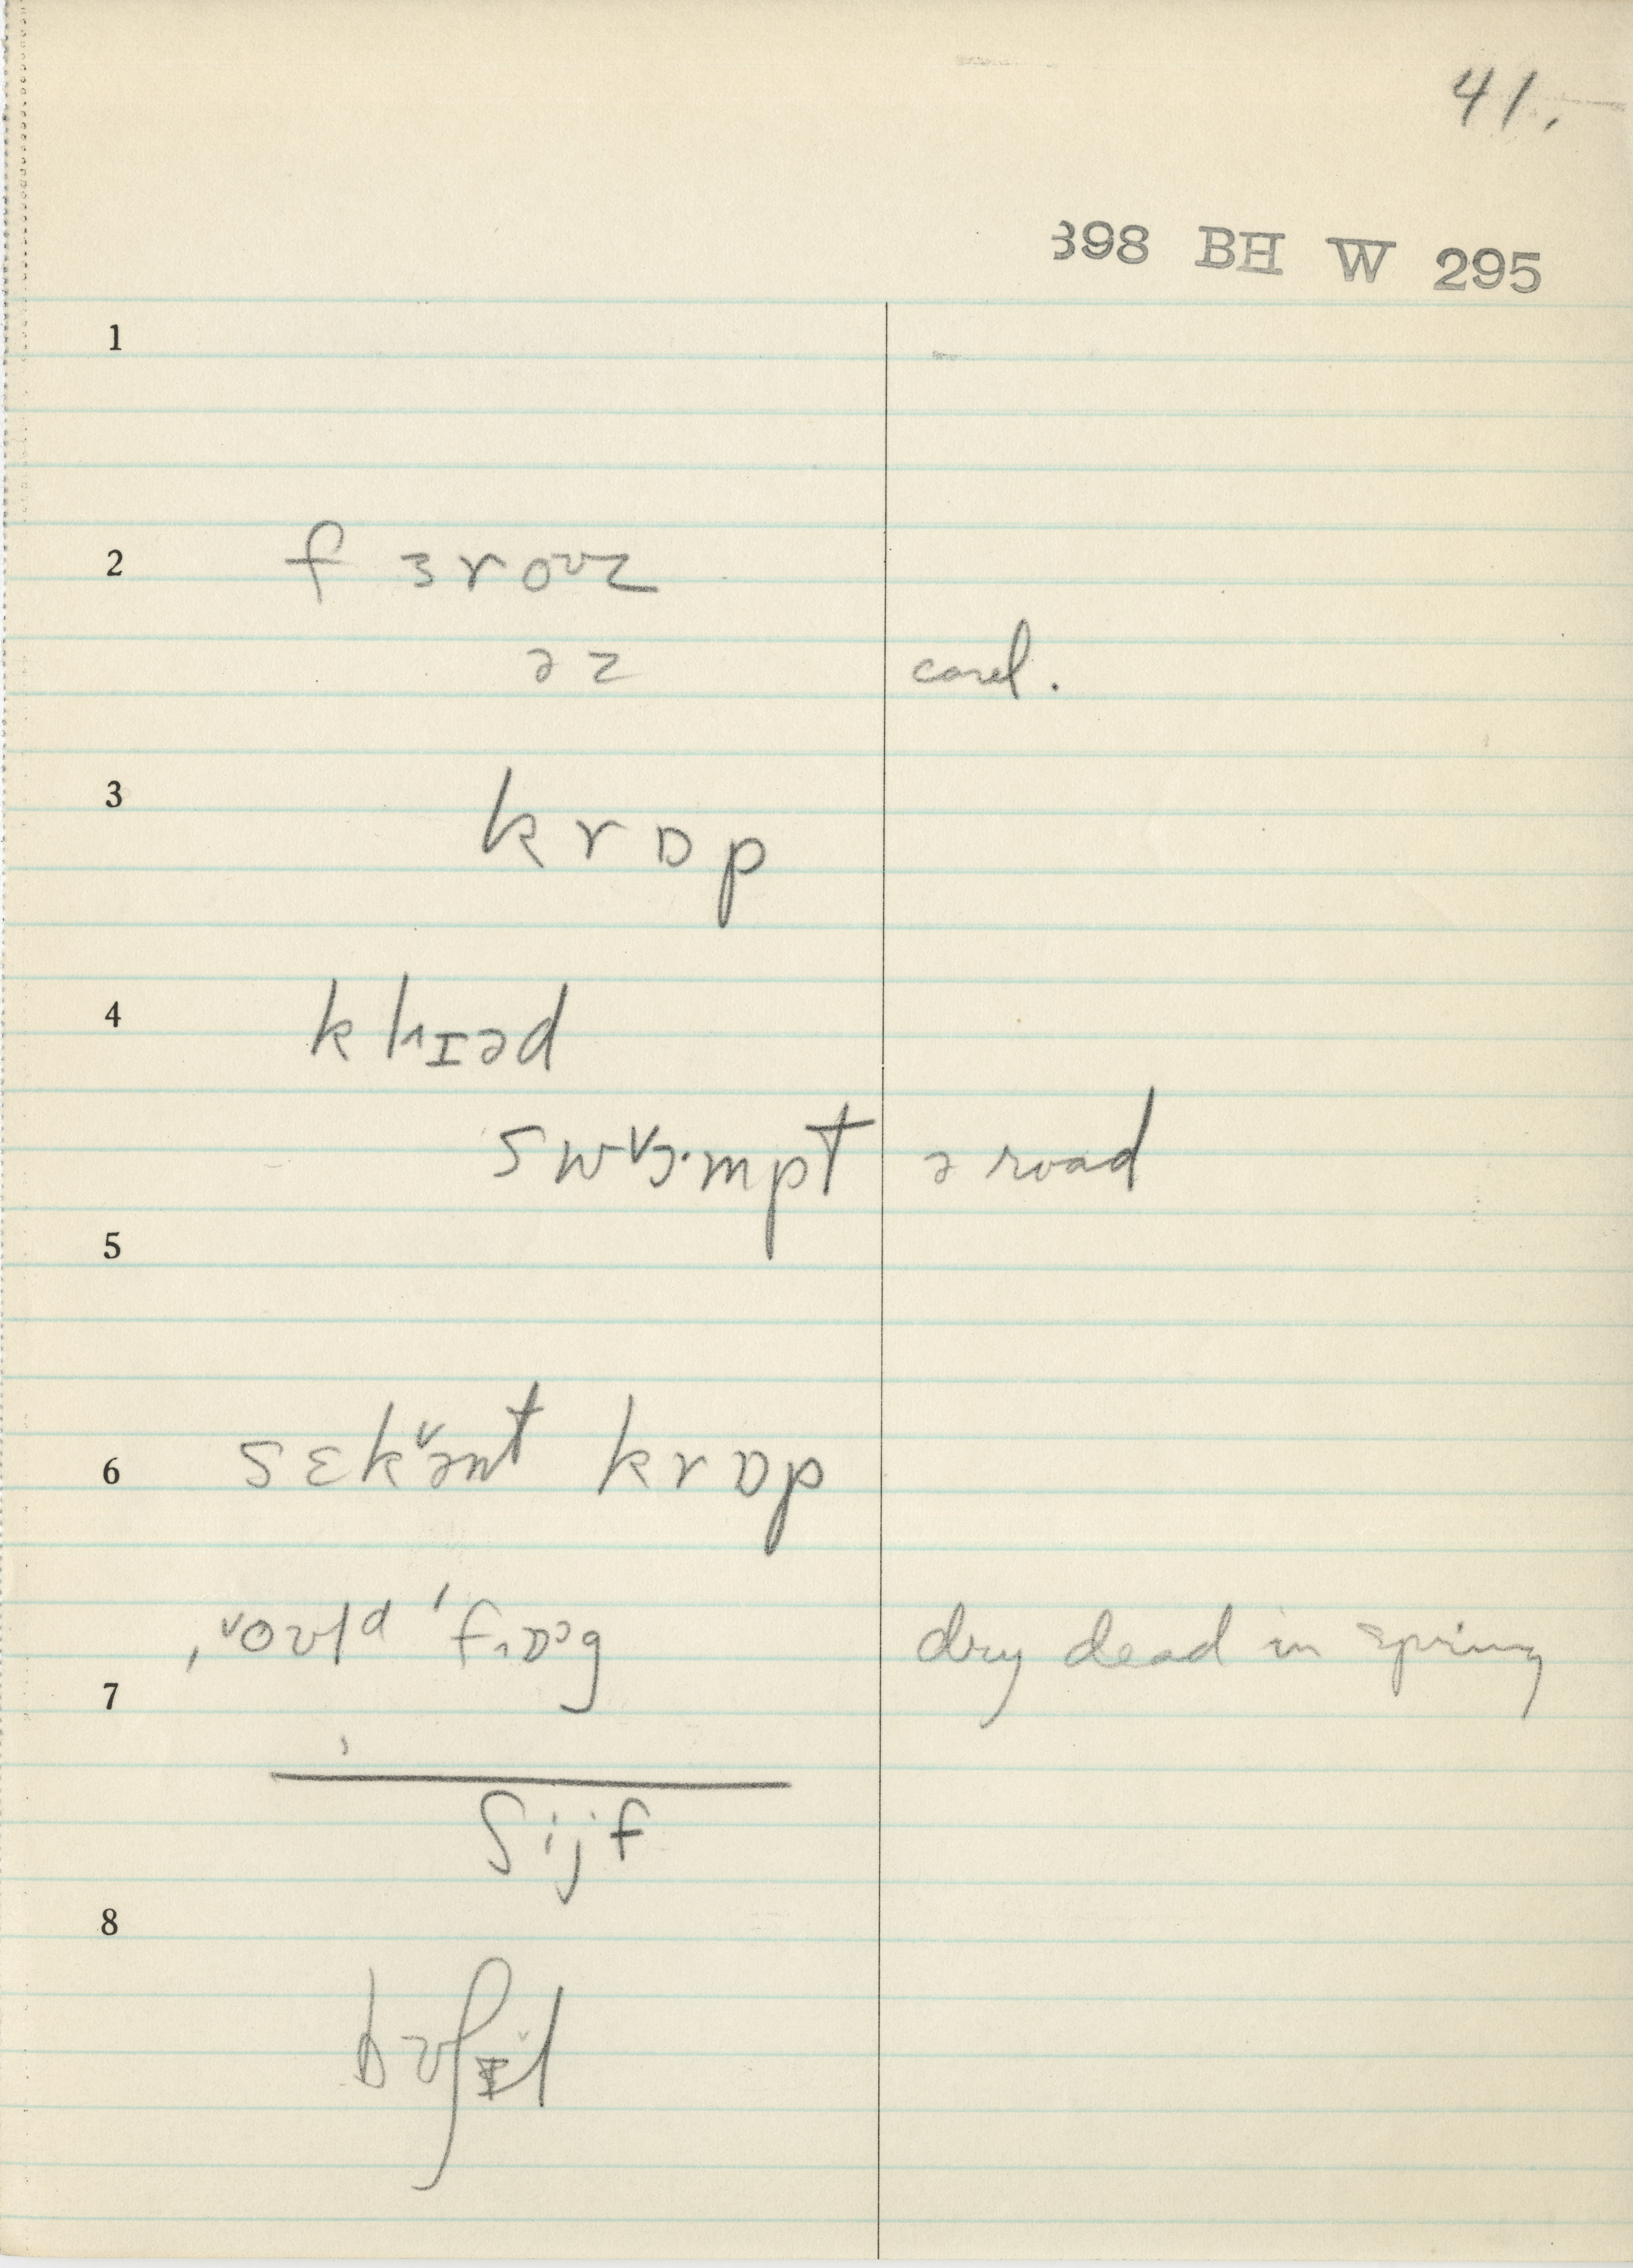 41.
398 BH W 295
1
2 f ɜroʊz
əz card.
3 krɒp
4 klɪəd
swɒ·mpt a road
5
6 sɛkənt krɒp
ˌoʊld ˈfɒg dry dead in spring
7
ʃijf
8
bʊʃɪl